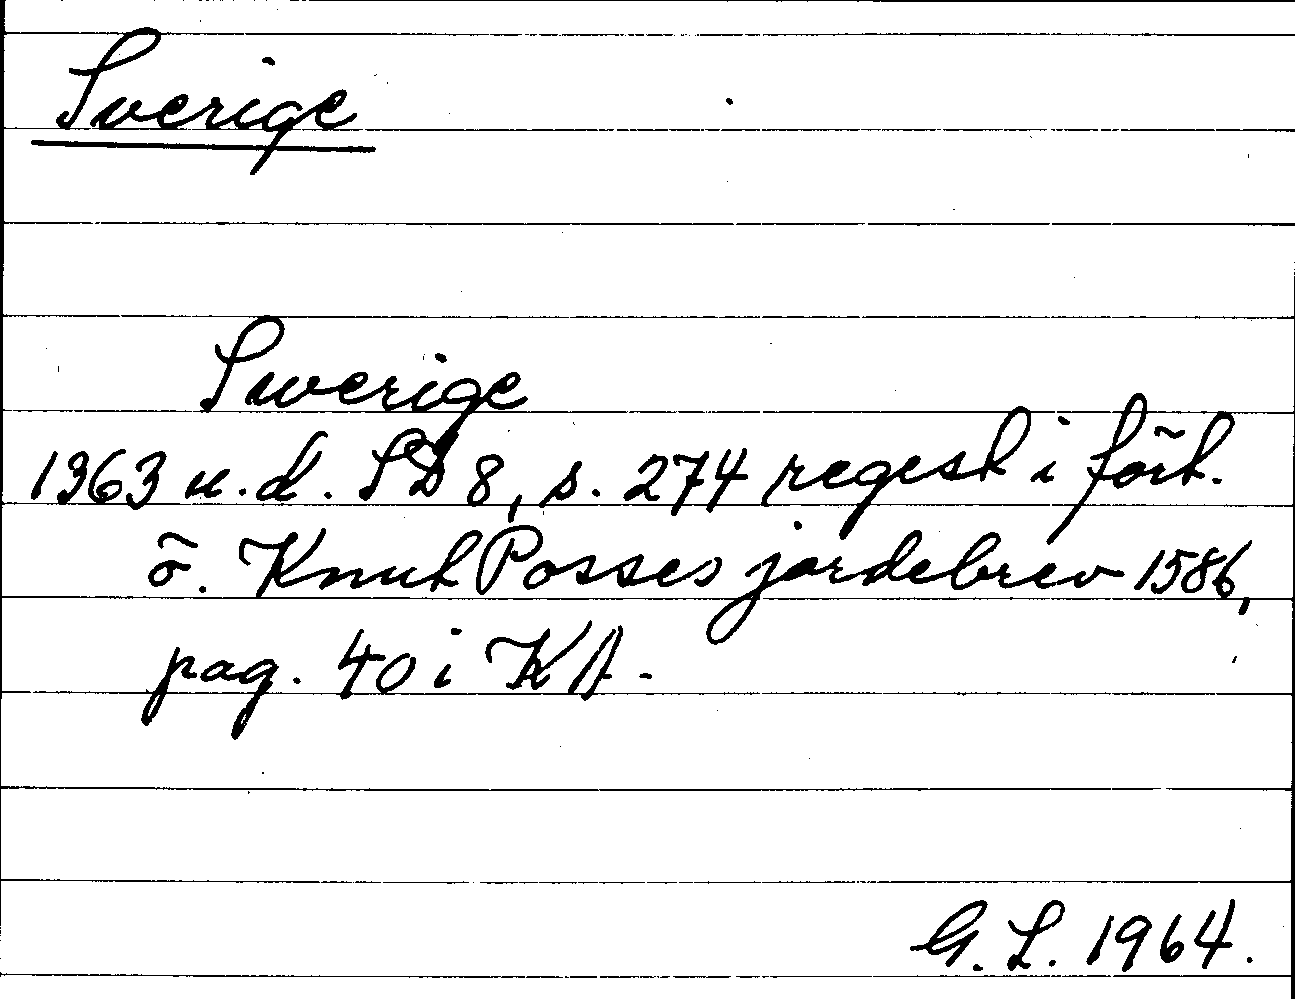 Sverige
Swerige
1363 u.d. SD 8, s. 274 regest i fört.
ö. Knut Posses jordebrev 1586,
pag. 40 i KA.
G. L. 1964.